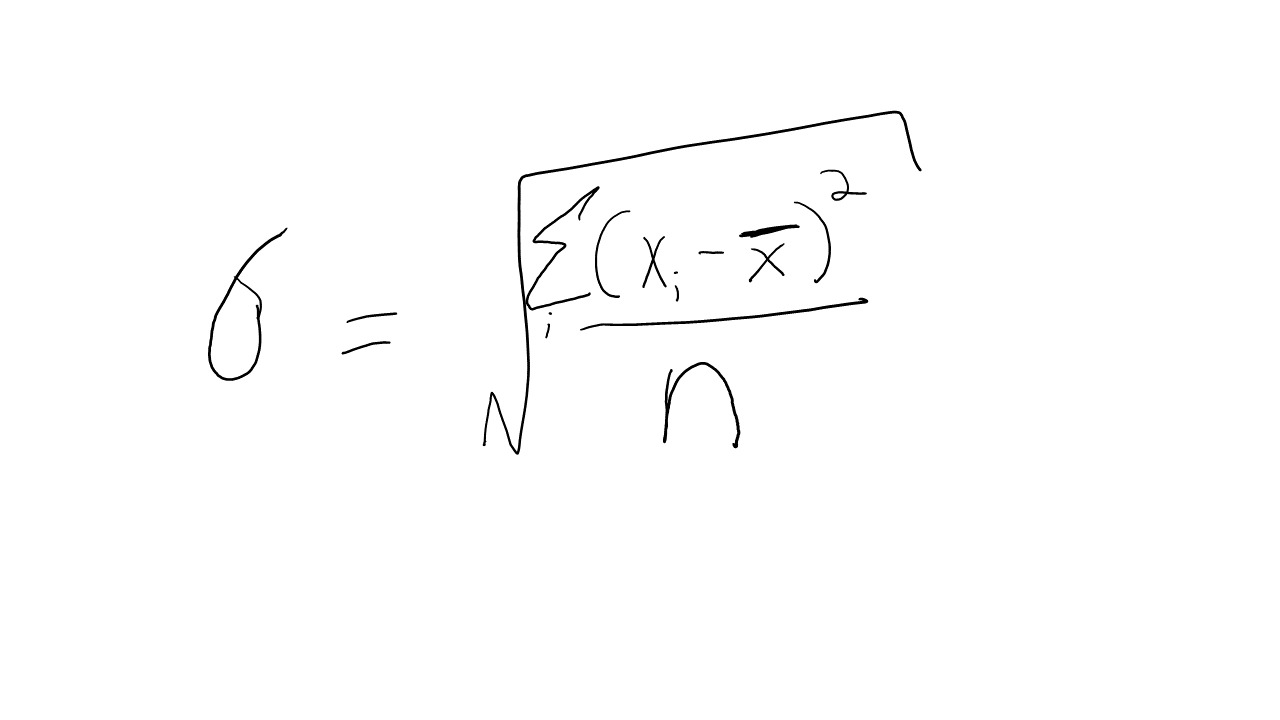 σ = √(∑_i (x_i - x̄)² / n)